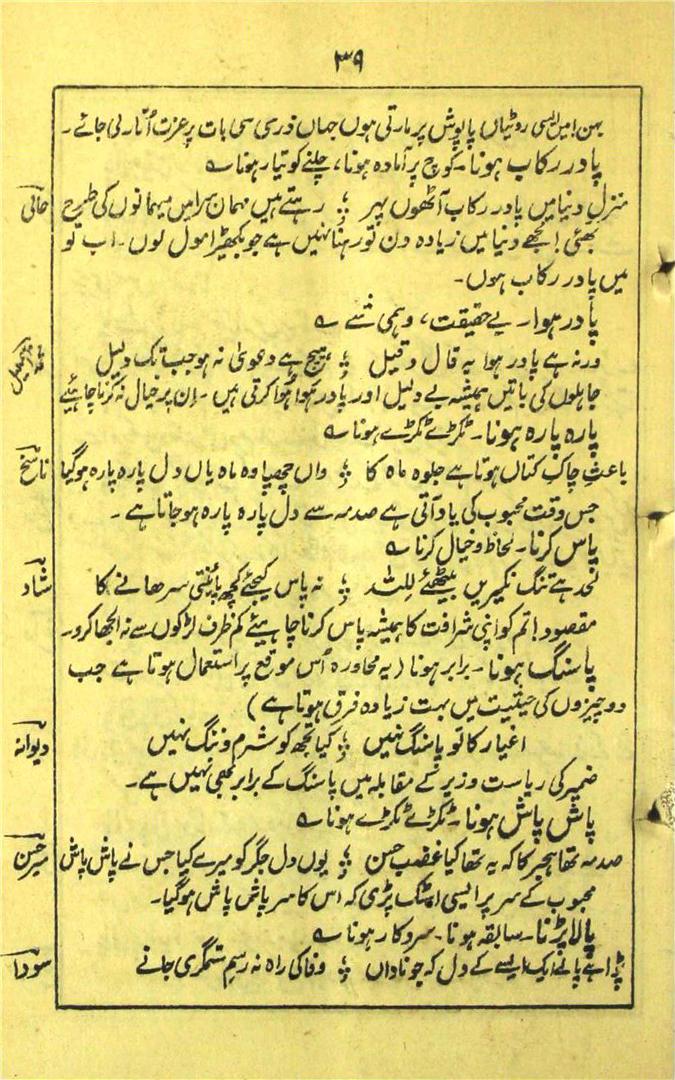 ۳۹
بہن! میں ایسی روٹیاں پاپوش پر مارتی ہوں جہاں ذری سی بات پر عزت اُتار لی جائے۔
پا در رکاب ہونا۔ کوچ پر آمادہ ہونا، چلنے کو تیار ہونا ؎
منزل دنیا میں پا در رکاب آٹھوں پہر ؛ رہتے ہیں مہماں سرا میں میہمانوں کی طرح حالی
بھئی! مجھے دنیا میں زیادہ دن تو رہنا نہیں ہے جو بکھیڑا مول لوں۔ اب تو
میں پا در رکاب ہوں۔
پا در ہوا۔ بے حقیقت، وہمی شے ؎
ورنہ ہے پا در ہوا یہ قال و قیل ؛ ہیچ ہے دعویٰ نہ ہو جب تک دلیل
جاہلوں کی باتیں ہمیشہ بے دلیل اور پا در ہوا ہُوا کرتی ہیں۔ اِن پر خیال نہ کرنا چاہئے
پارہ پارہ ہونا۔ ٹکڑے ٹکڑے ہونا ؎
باعثِ چاک کتاں ہوتا ہے جلوہ ماہ کا ؛ واں چھپا وہ ماہ یاں دل پارہ پارہ ہو گیا ناسخ
جس وقت محبوب کی یاد آتی ہے صدمہ سے دل پارہ پارہ ہو جاتا ہے۔
پاس کرنا۔ لحاظ و خیال کرنا ؎
لحد ہے تنگ نکیریں بیٹھئے للّٰہ ؛ نہ پاس کیجئے کچھ پائنتی سرھانے کا شاد
مقصود! تم کو اپنی شرافت کا ہمیشہ پاس کرنا چاہیئے کم ظرف لڑکوں سے نہ الجھا کرو۔
پاسنگ ہونا۔ برابر ہونا (یہ محاورہ اُس موقع پر استعمال ہوتا ہے جب
دو چیزوں کی حیثیت میں بہت زیادہ فرق ہوتا ہے)
اغیار کا تو پاسنگ نہیں ؛ کیا تجھ کو شرم و ننگ نہیں دیوانہ
ضمیر کی ریاست وزیر کے مقابلہ میں پاسنگ کے برابر بھی نہیں ہے۔
پاش پاش ہونا۔ ٹکڑے ٹکڑے ہونا ؎
صدمہ تھا ہجر کا کہ یہ تھا کیا غضب حسن ؛ یوں دل جگر کو میرے کیا جس نے پاش پاش میر حسن
محبوب کے سر پر ایسی اینٹ پڑی کہ اس کا سر پاش پاش ہو گیا۔
پالا پڑنا۔ سابقہ ہونا۔ سروکار ہونا ؎
پڑا ہے پالے ایک ایسے کے دل کہ جو ناداں ؛ وفا کی راہ نہ رسمِ ستمگری جانے سودا